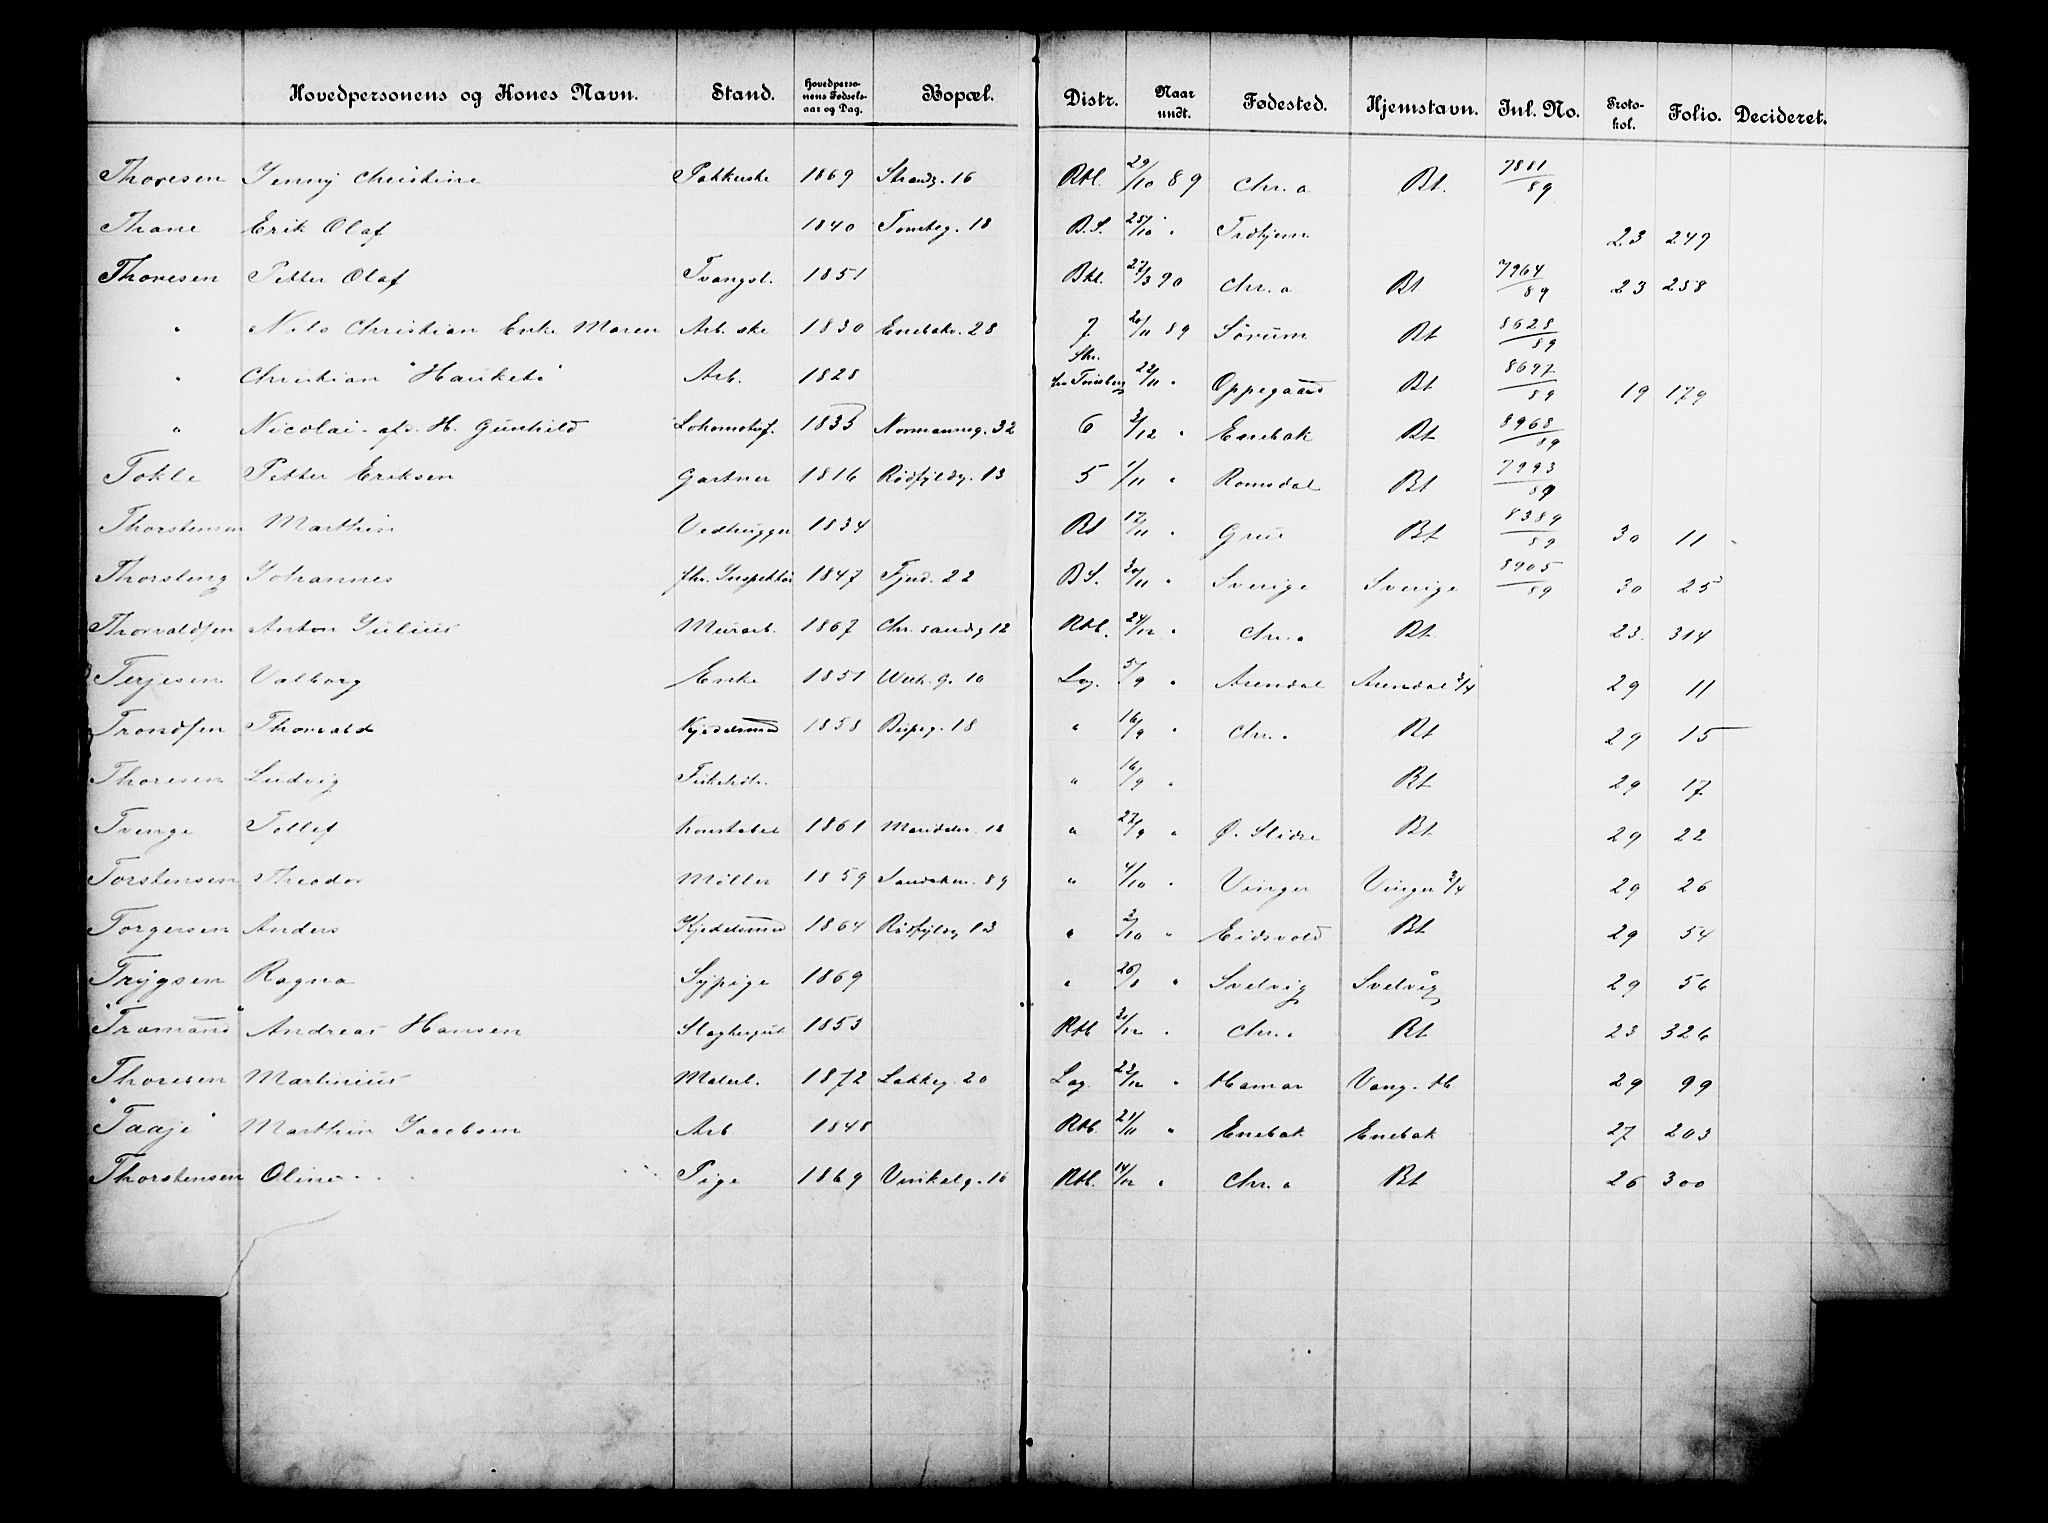 Hovedpersonens og Kones Navn. Stand. Hovedpersonens Fødselsaar og Dag. Bopæl. Distr. Naar undt. Fødested. Hjemstavn. Inl. No. Protokol. Folio. Decideret.
Thoresen Jenny Christine Pakkerske 1869 Strandg. 16 Rtl. 29/10 89 Chr.a Bt. 7881/89
Thane Erik Olaf 1840 Tomteg. 18 B.S. 25/10 " Trdhjem 23 249
Thoresen Petter Olaf Tvangst. 1851 Bkl. 27/3 90 Chr.a Bt 7964/89 23 258
" Nils Christian Enke Maren Arb. ske 1830 Enebakv. 28 7 20/11 89 Sørum Bt 8628/89
" Christian "Hauketo" Arb. 1828 22/11 " Oppegaard Bt 8697/89 19 179
" Nicolai - afd. H. Gunhild Lokomotivf. 1833 Normannsg. 32 6 3/12 " Enebak Bt 8968/89
Tokle Petter Eriksen Gartner 1816 Rødfyldg. 13 5 1/11 " Romsdal Bt 7993/89
Thorstensen Marthin Vedhugger 1834 Bt 17/11 " Grue Bt 8389/89 30 11
Thorsteng Johannes fhr. Inspektör 1847 Tjud. 22 B.S. 30/11 " Sverige Sverige 8905/89 30 25
Thorvaldsen Anton Julius Murarb. 1867 Chr. sandg 12 Rtl. 24/12 " Chr.a Bt 23. 314
Terjesen Valborg Enke 1851 Werk.G. 10 Lag. 5/9 " Arendal Arendal 3/4 29 11
Trondsen Thorvald Kjedelsmed 1858 Bispeg. 18 " 16/9 " Chr.a Bt 29 15
Thoresen Ludvig Fiskehdr. " 16/9 " Bt 29 17
Tvenge Tollef Konstabel 1861 Maridalsv. 18 " 27/9 " Ø. Slidre Bt 29 22
Torstensen Theodor Møller 1859 Sandakerv. 89 " 4/10 " Vinger Vinger 3/4 29 26
Torgersen Anders Kjedelsmed 1864 Rødfyldg 13 " 3/10 " Eidsvold Bt 29 54
Trygsen Ragna Sypige 1869 " 26/8 " Svelvig Svelvig 29 56
"Tramand" Andreas Hansen Slagtergut 1853 Rtl 31/12 " Chr.a Bt 23 326
Thoresen Martinius Malerl. 1872 Lakkeg. 20 Lag. 23/12 " Hamar Vang. H 29 99
"Taaje" Marthin Jacobsen Arb. 1848 Rtl. 21/11 " Enebak Enebak 27 203
Thorstensen Oline Pige 1869 Vinkelg. 10 Rtl. 14/12 " Chr.a Bt 26 300